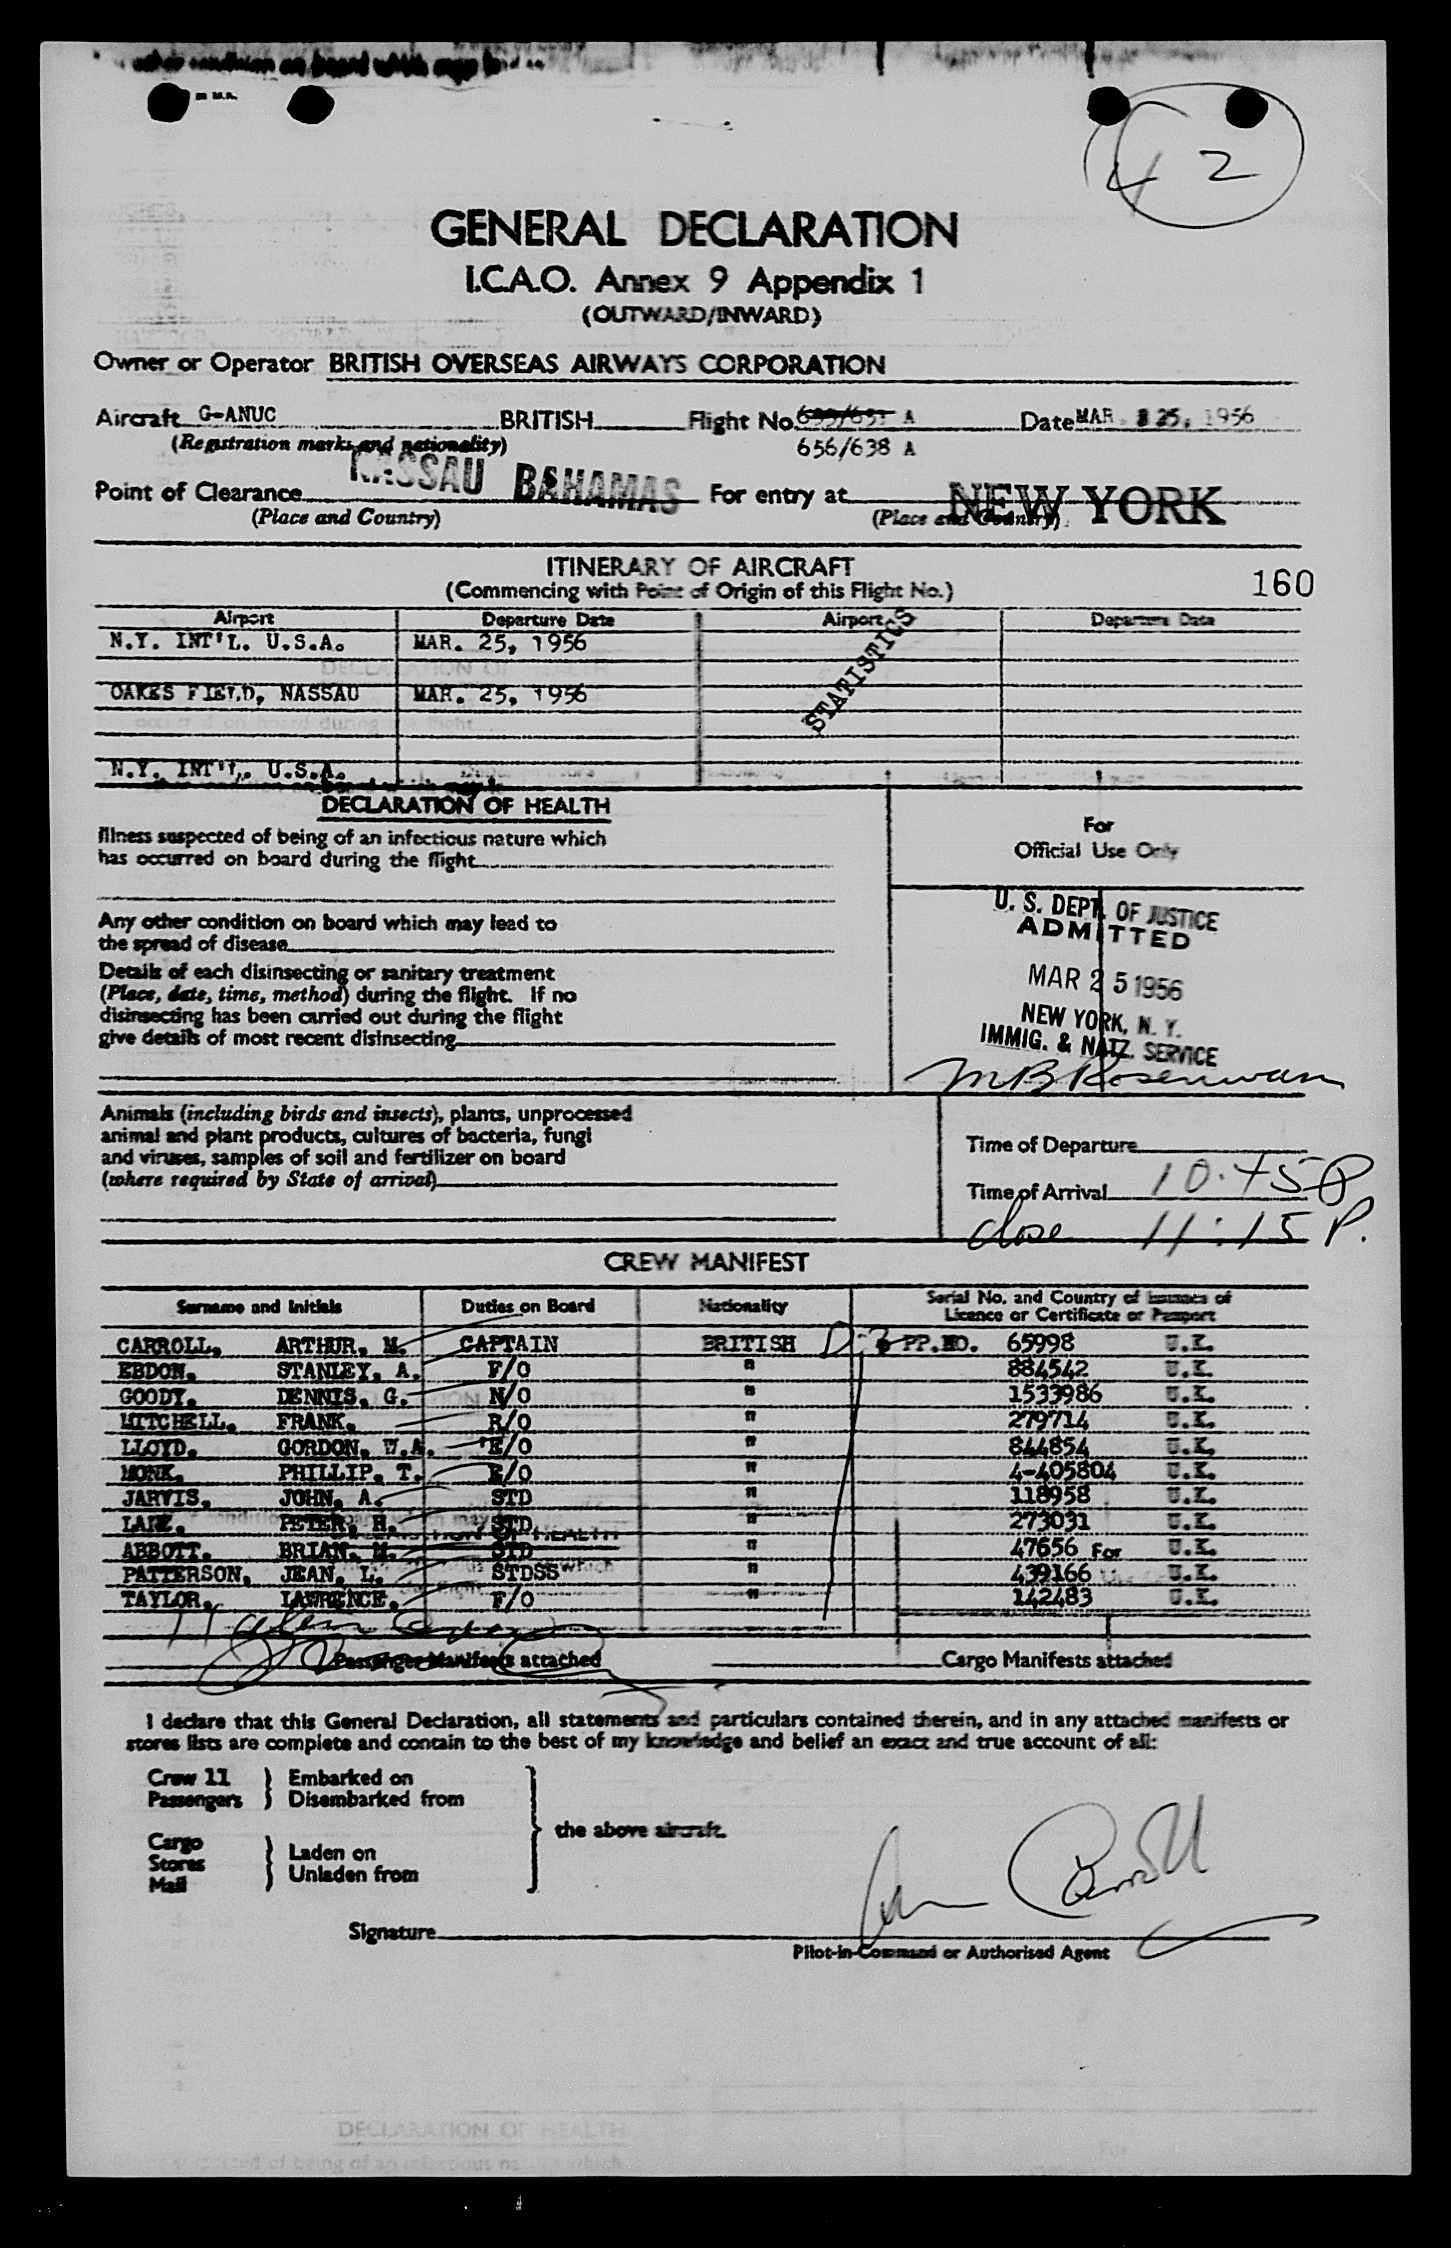 42
GENERAL DECLARATION
I.C.A.O. Annex 9 Appendix 1
(OUTWARD/INWARD)
Owner or Operator BRITISH OVERSEAS AIRWAYS CORPORATION
Aircraft G-ANUC BRITISH Flight No. A Date MAR. 25, 1956
(Registration marks and nationality) 656/638 A
Point of Clearance NASSAU BAHAMAS For entry at NEW YORK
(Place and Country) (Place and Country)
ITINERARY OF AIRCRAFT
(Commencing with Point of Origin of this Flight No.) 160
Airport Departure Date Airport Departure Date
N.Y. INT'L. U.S.A. MAR. 25, 1956
STATISTICS
OAKES FIELD, NASSAU MAR. 25, 1956
N.Y. INT'L. U.S.A.
DECLARATION OF HEALTH
Illness suspected of being of an infectious nature which
has occurred on board during the flight
For
Official Use Only
Any other condition on board which may lead to
the spread of disease
Details of each disinsecting or sanitary treatment
(Place, date, time, method) during the flight. If no
disinsecting has been carried out during the flight
give details of most recent disinsecting
U. S. DEPT. OF JUSTICE
ADMITTED
MAR 25 1956
NEW YORK, N. Y.
IMMIG. & NATZ. SERVICE
Animals (including birds and insects), plants, unprocessed
animal and plant products, cultures of bacteria, fungi
and viruses, samples of soil and fertilizer on board
(where required by State of arrival)
Time of Departure
Time of Arrival 10.45 P
close 11:15 P.
CREW MANIFEST
Surname and Initials Duties on Board Nationality Serial No. and Country of Issuance of
Licence or Certificate or Passport
CARROLL, ARTHUR, M. CAPTAIN BRITISH PP.NO. 65998 U.K.
EBDON, STANLEY, A. F/O " 884542 U.K.
GOODY, DENNIS, G. N/O " 1533986 U.K.
MITCHELL, FRANK. R/O " 279714 U.K.
LLOYD, GORDON, W.A. E/O " 844854 U.K.
MONK, PHILLIP, T. E/O " 4-405804 U.K.
JARVIS, JOHN, A. STD " 118958 U.K.
PETER, H. STD " 273031 U.K.
ABBOTT. BRIAN, M. STD " 47656 For U.K.
PATTERSON, JEAN, L. STDSS " 439166 U.K.
TAYLOR, LAWRENCE. F/O " 142483 U.K.
11 alien
Passenger Manifests attached Cargo Manifests attached
I declare that this General Declaration, all statements and particulars contained therein, and in any attached manifests or
stores lists are complete and contain to the best of my knowledge and belief an exact and true account of all:
Crew 11 } Embarked on
Passengers } Disembarked from
the above aircraft.
Cargo
Stores } Laden on
Mail } Unladen from
Signature
Pilot-in-Command or Authorised Agent